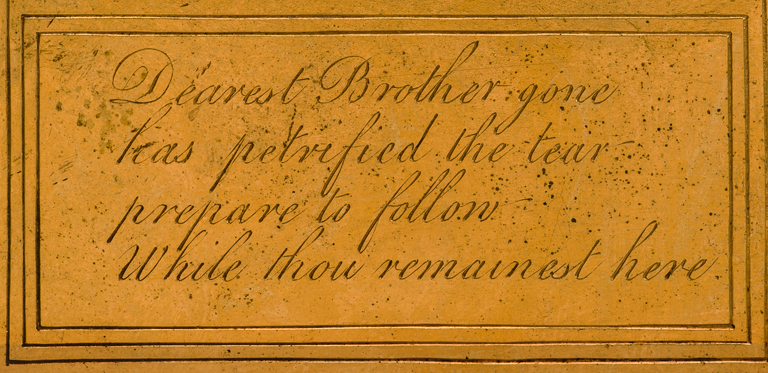 Dearest Brother gone
has petrified the tear
prepare to follow
While thou remainest here